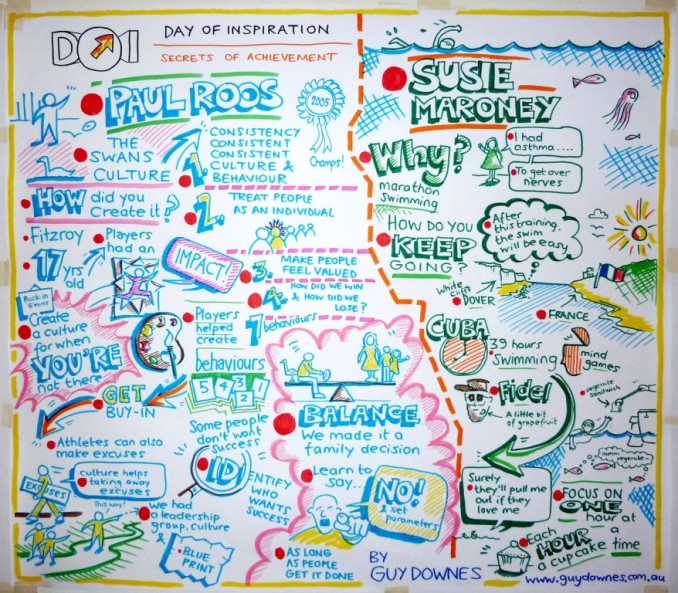 DOI
DAY OF INSPIRATION
SECRETS OF ACHIEVEMENT
PAUL ROOS
2005
Champs!
THE
SWANS
CULTURE
1.
CONSISTENCY
CONSISTENT
CONSISTENT
CULTURE &
BEHAVIOUR
HOW did you
Create it?
2.
TREAT PEOPLE
AS AN INDIVIDUAL
Fitzroy
17 yrs
old
Players
had an
IMPACT!
3.
MAKE PEOPLE
FEEL VALUED
4.
HOW DID WE WIN
& HOW DID WE
LOSE?
Back in
Create
a culture
for when
YOU'RE
not there
Players
helped
create
7 behaviours
behaviours
5 4 3 2 1
GET
BUY-IN
Athletes can also
make excuses
EXCUSES
culture helps
taking away
excuses
This way!
We had
a leadership
group, culture
BLUE
PRINT
Some people
don't want
success
IDENTIFY
WHO
WANTS
SUCCESS
BALANCE
We made it a
family decision
Learn to
say...
NO!
& set
parameters
AS LONG
AS PEOPLE
GET IT DONE
BY
GUY DOWNES
SUSIE
MARONEY
Why?
marathon
swimming
I had
asthma....
To get over
nerves
HOW DO YOU
KEEP
GOING?
After
this training,
the swim
will be easy
White
Cliffs
DOVER
FRANCE
CUBA
39 hours
swimming
mind
games
Fidel
A little bit
of grapefruit
vegemite
sandwich
mmm
vegemite..
Surely
they'll pull me
out if they
love me
FOCUS ON
ONE
hour at
a
time
Each
HOUR
a cupcake
www.guydownes.com.au